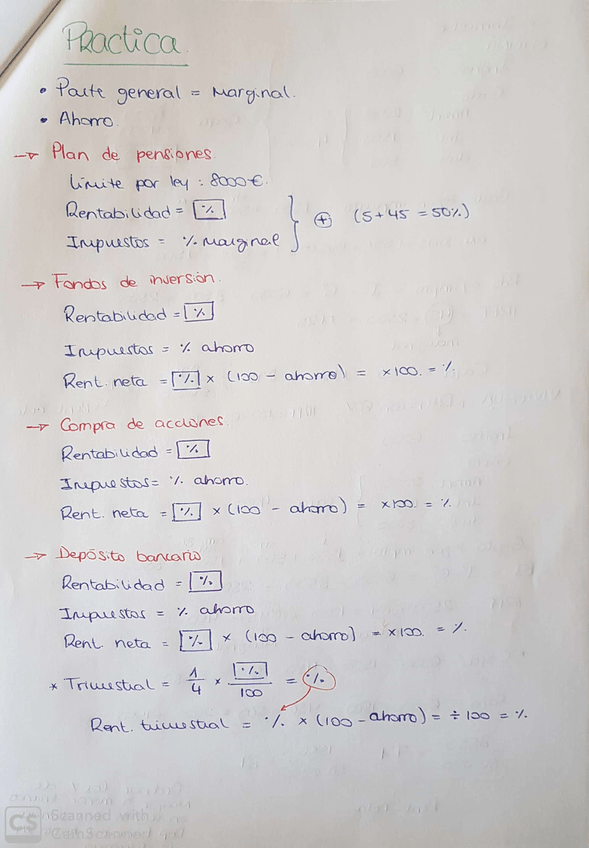 Practica
• Parte general = Marginal.
• Ahorro
→ Plan de pensiones.
Límite por ley : 8000€.
Rentabilidad = %
Impuestos = % marginal
} ⊕ (5+45 = 50%)
→ Fondos de inversión.
Rentabilidad = %
Impuestos = % ahorro
Rent. neta = % × (100 - ahorro) = ×100. = %.
→ Compra de acciones.
Rentabilidad = %
Impuestos = % ahorro.
Rent. neta = % × (100 - ahorro) = ×100. = %
→ Depósito bancario
Rentabilidad = %
Impuestos = % ahorro
Rent. neta = % × (100 - ahorro) = ×100. = %.
* Trimestral = 1/4 × %/100 = %
Rent. trimestral = % × (100 - ahorro) = ÷ 100 = %
CS Scanned with
CamScanner